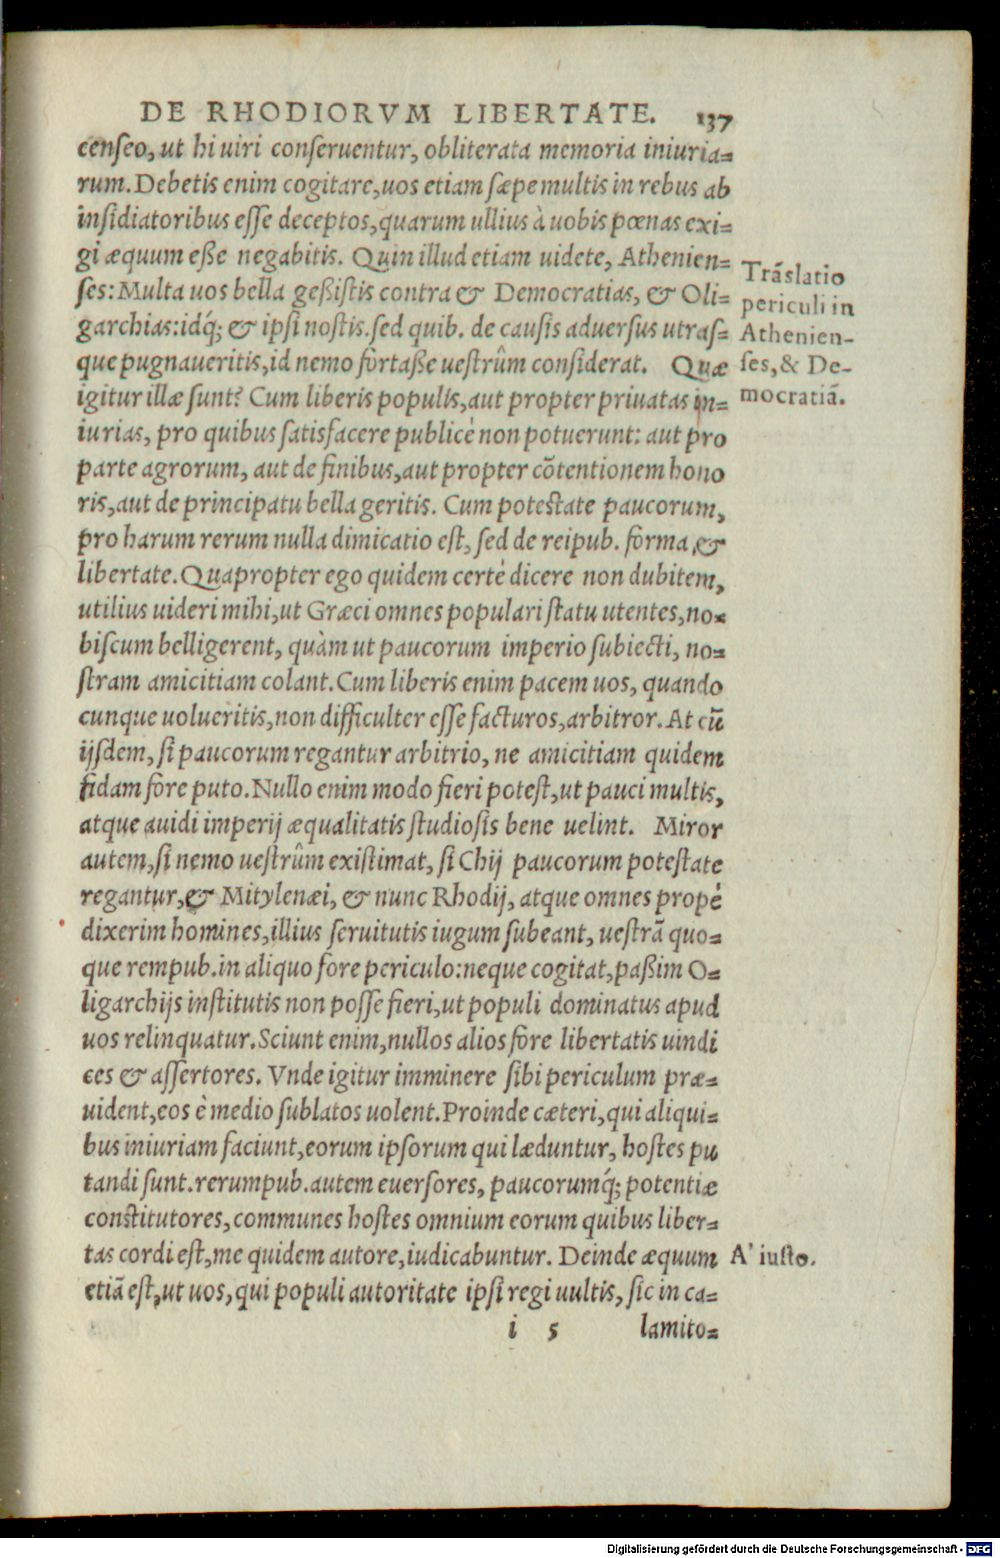 DE RHODIORVM LIBERTATE. 137
censeo, ut hi uiri conseruentur, obliterata memoria iniuria=
rum. Debetis enim cogitare, uos etiam sæpe multis in rebus ab
insidiatoribus esse deceptos, quarum ullius à uobis pœnas exi=
gi æquum eße negabitis. Quin illud etiam uidete, Athenien=
ses: Multa uos bella geßistis contra & Democratias, & Oli=
garchias: idq́; & ipsi nostis. sed quib. de causis aduersus utras=
que pugnaueritis, id nemo fortaße uestrûm considerat. Quæ
igitur illæ sunt? Cum liberis populis, aut propter priuatas in=
iurias, pro quibus satisfacere publicè non potuerunt: aut pro
parte agrorum, aut de finibus, aut propter cōtentionem hono
ris, aut de principatu bella geritis. Cum potestate paucorum,
pro harum rerum nulla dimicatio est, sed de reipub. forma, &
libertate. Quapropter ego quidem certè dicere non dubitem,
utilius uideri mihi, ut Græci omnes populari statu utentes, no=
biscum belligerent, quàm ut paucorum imperio subiecti, no=
stram amicitiam colant. Cum liberis enim pacem uos, quando
cunque uolueritis, non difficulter esse facturos, arbitror. At cū
ijsdem, si paucorum regantur arbitrio, ne amicitiam quidem
fidam fore puto. Nullo enim modo fieri potest, ut pauci multis,
atque auidi imperij æqualitatis studiosis bene uelint. Miror
autem, si nemo uestrûm existimat, si Chij paucorum potestate
regantur, & Mitylenæi, & nunc Rhodij, atque omnes propè
dixerim homines, illius seruitutis iugum subeant, uestrā quo=
que rempub. in aliquo fore periculo: neque cogitat, paßim O=
ligarchijs institutis non posse fieri, ut populi dominatus apud
uos relinquatur. Sciunt enim, nullos alios fore libertatis uindi
ces & assertores. Vnde igitur imminere sibi periculum præ=
uident, eos è medio sublatos uolent. Proinde cæteri, qui aliqui=
bus iniuriam faciunt, eorum ipsorum qui læduntur, hostes pu
tandi sunt. rerumpub. autem euersores, paucorumq́; potentiæ
constitutores, communes hostes omnium eorum quibus liber=
tas cordi est, me quidem autore, iudicabuntur. Deinde æquum
etiā est, ut uos, qui populi autoritate ipsi regi uultis, sic in ca=
i 5 lamito=
Trāslatio
periculi in
Athenien-
ses, & De-
mocratiā.
A' iusto.
Digitalisierung gefördert durch die Deutsche Forschungsgemeinschaft - DFG